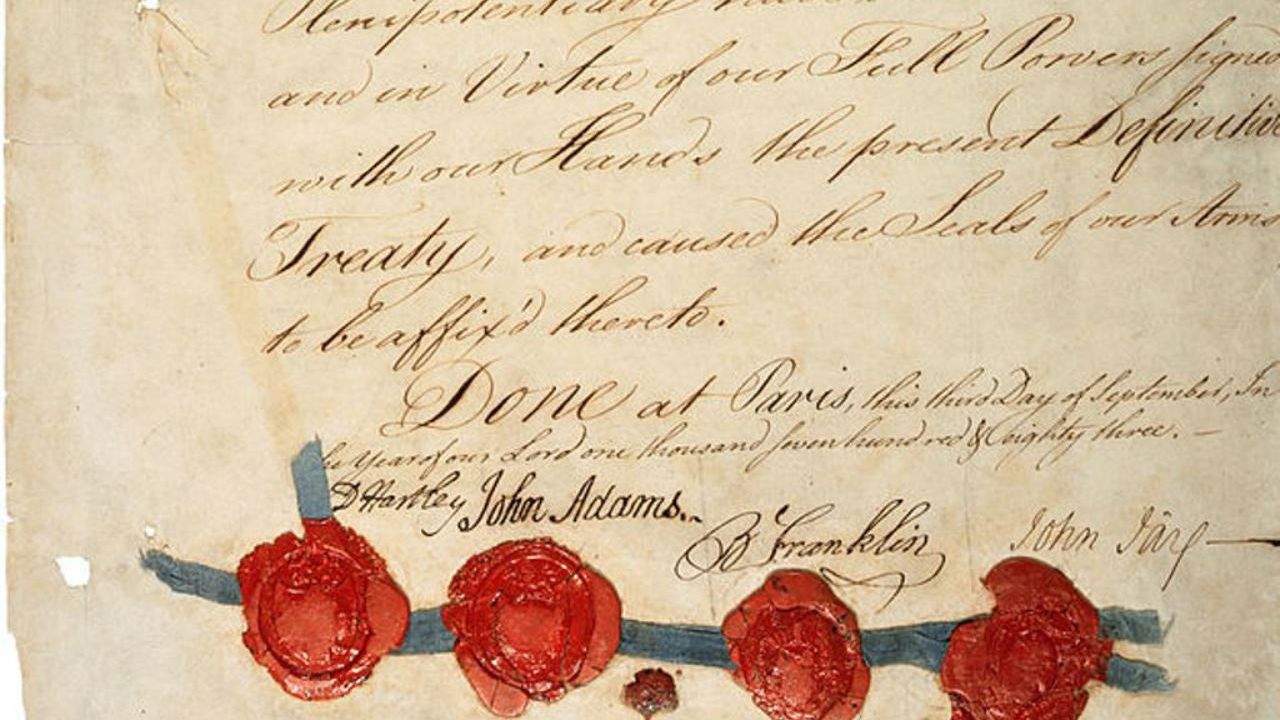 Plenipotentiary
and in Virtue of our Full Powers signed
with our Hands the present Definitive
Treaty, and caused the Seals of our Arms
to be affix'd thereto.
Done at Paris, this third Day of September, In
the Year of our Lord one thousand seven hundred & eighty three. —
D Hartley John Adams. B Franklin John Jay —